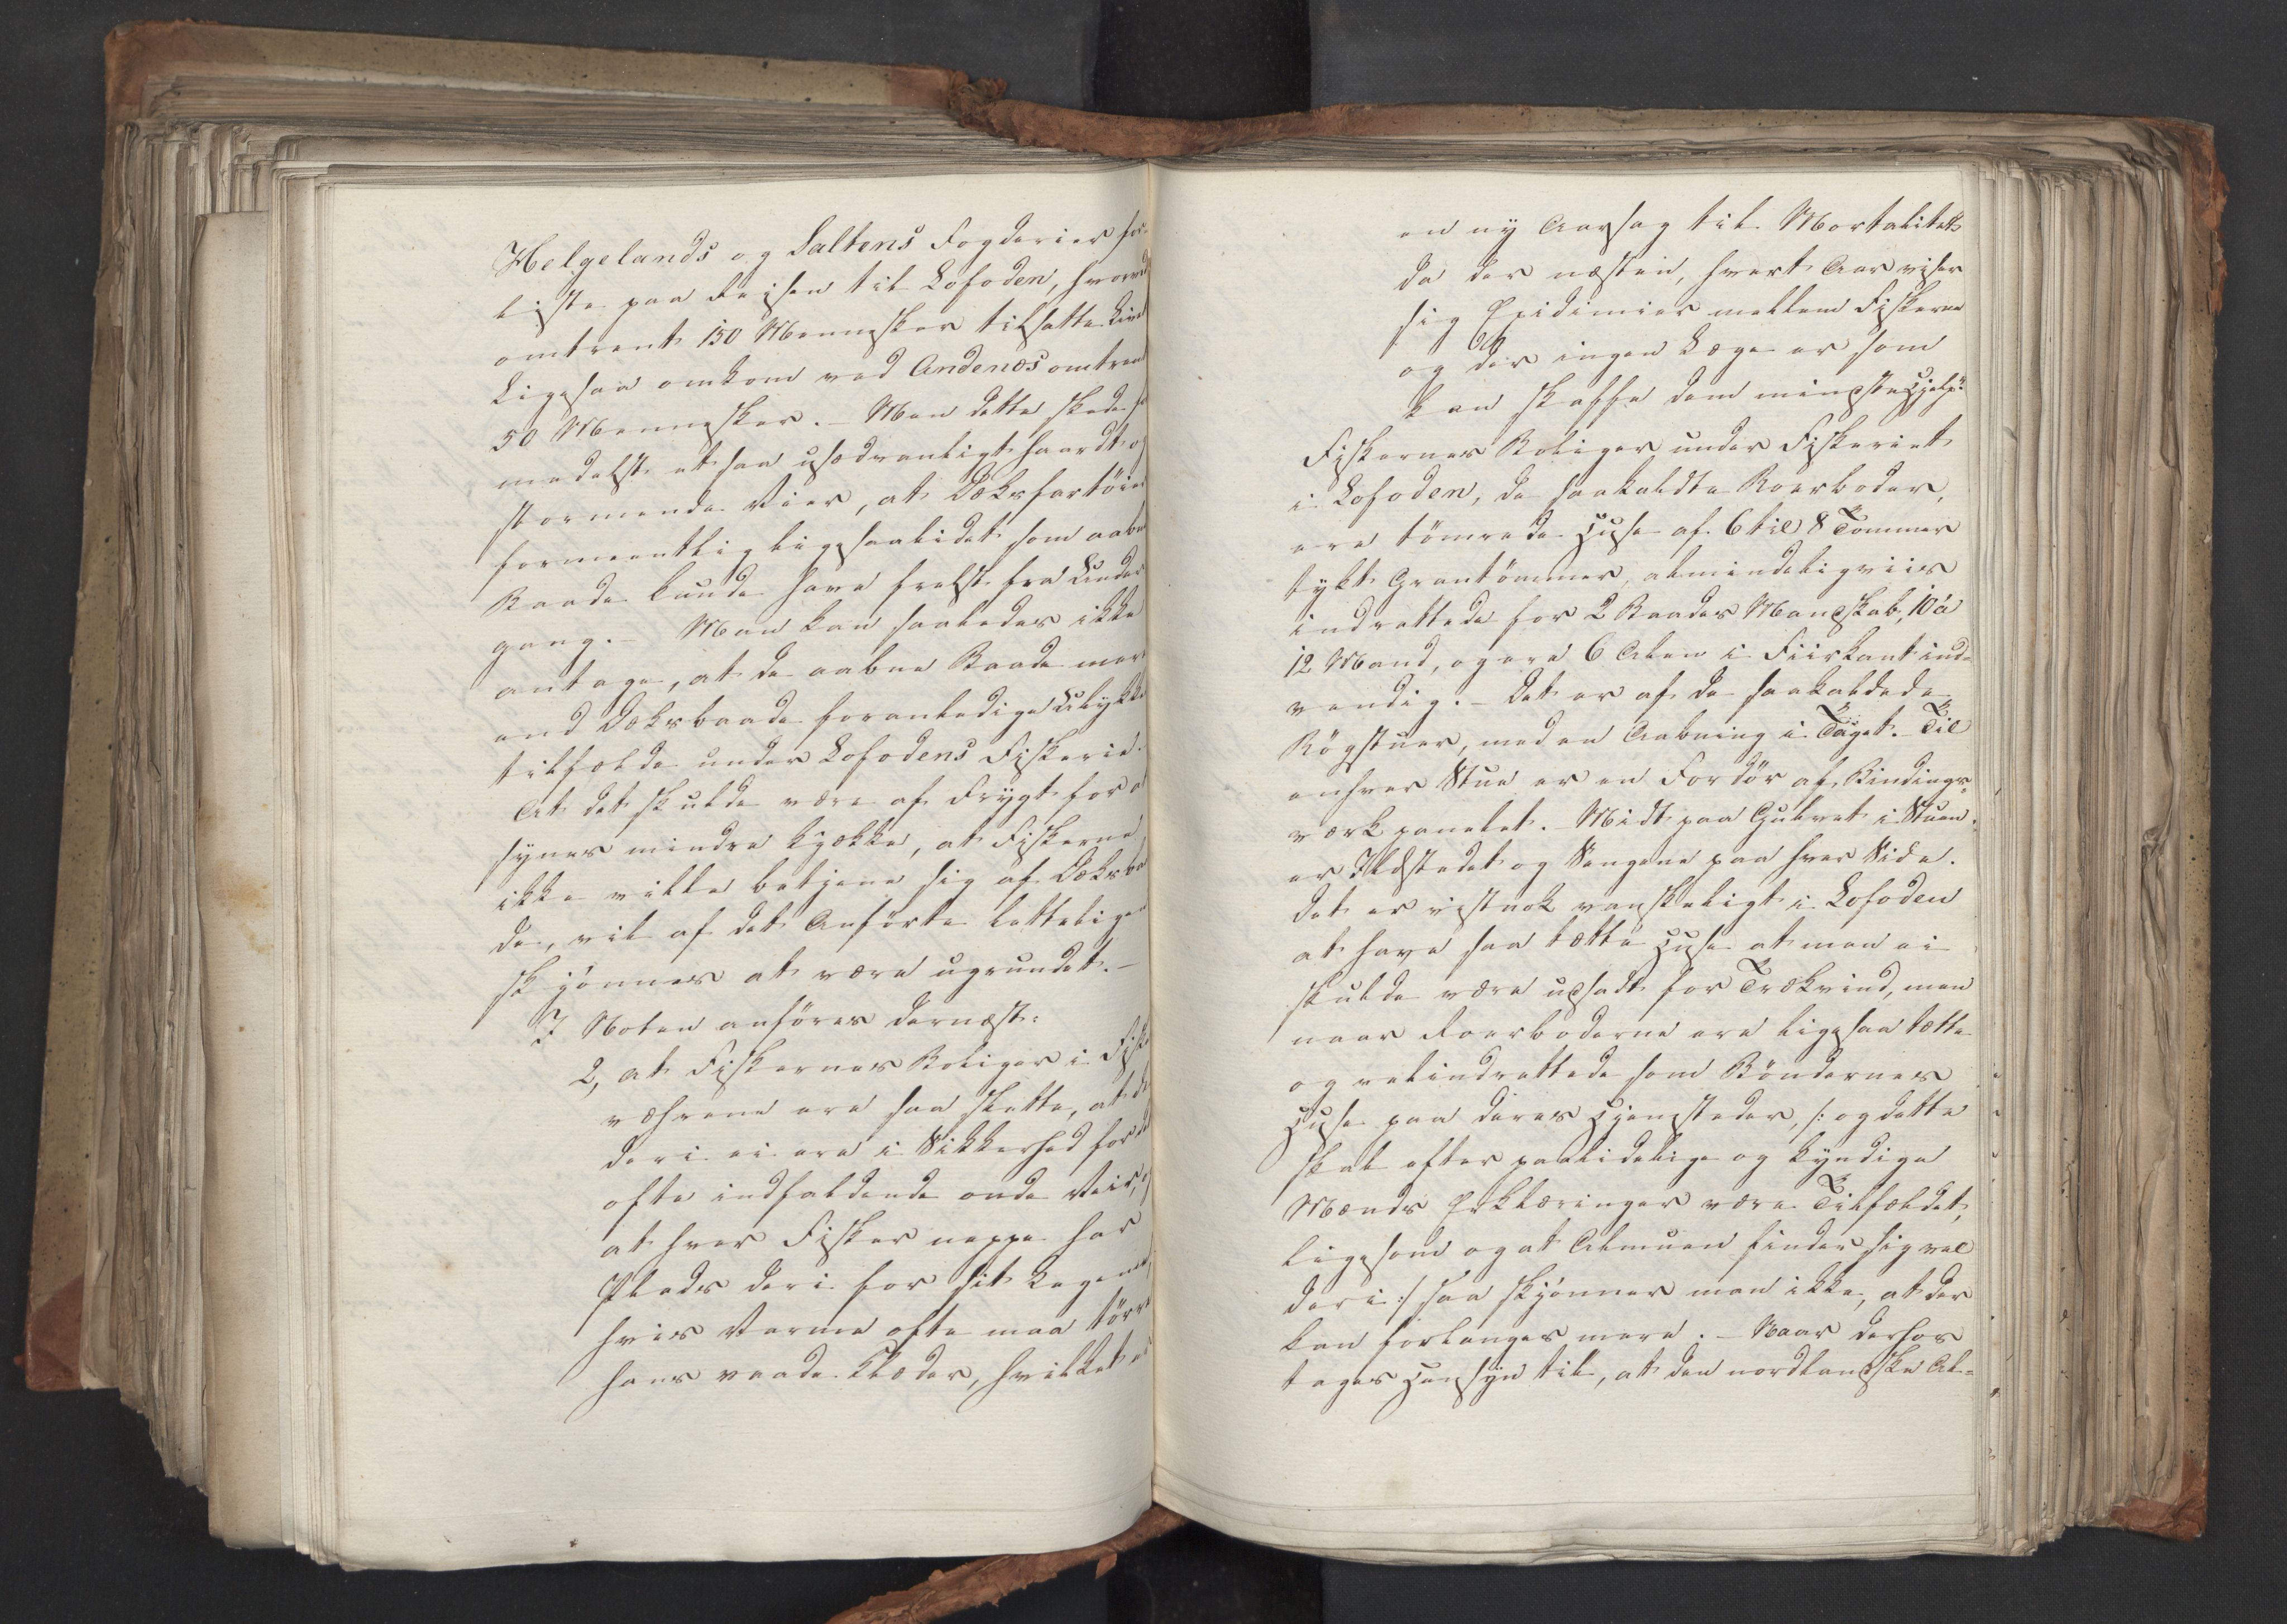 Helgelands og Saltens Fogderier for-
liste paa Reisen til Lofoden, hvorved
omtrent 150 Mennesker tilsatte Livet
Ligesaa omkom ved Andenæs omtrent
50 Mennesker. – Men dette skede
medelst et saa usædvanligt haardt og
stormende Veir, at Dæksfartöier
formeentlig ligesaalidet som aabne
Baade kunde have frelst fra Under-
gang. – Man kan saaledes ikke
antage, at de aabne Baade meer
end Dæksbaade foranledige Ulykkes
tilfælde under Lofodens Fiskerie.
At det skulde være af Frygt for at
synes mindre kjække, at Fiskerne
ikke ville betjene sig af Dæksbaa
de, vil af det Anförte lætteligen
skjönnes at være ugrundet. –
I Noten anföres dernæst:
2, at Fiskernes Boliger i Fiske
værene ere saa slette, at de
deri ei ere i Sikkerhed for det
ofte indfaldende onde Veir, og
at hver Fisker neppe har
Plads deri for sit Legeme,
hvis Varme ofte maa törre
hans vaade Klæder, hvilket er
en ny Aarsag til Mortalitet
da der næsten, hvert Aar viser
sig Epidimier mellem Fiskerne
og der ingen Læge er som
kan skaffe dem mindste Hjelp"
Fiskernes Boliger under Fiskeriet
i Lofoden, de saakaldte Roerboder,
ere tömrede Huse af 6 til 8 Tommer
tykt Grantömmer, almindeligviis
indrettede for 2 Baades Mandskab, 10 á
12 Mand, og ere 6 Alen i Fiirkant ind-
vendig. – Det er af de saakaldede
Rögstuer, med en Aabning i Taget. – Til
enhver Stue er en Fordör af Bindings-
værk panelet. – Midt paa Gulvet i Stuen
er Ildstedet og Sengene paa hver Side.
Det er vistnok vanskeligt i Lofoden
at have saa tætte Huse at man ei
skulde være udsadt for Trækvind, men
naar Roerboderne ere ligesaa tætte
og velindrettede som Böndernes
Huse paa deres Hjemsteder, /: og dette
skal efter paalidelige og kyndige
Mænds Erklæringer være Tilfældet,
ligesom og at Almuen finder sig vel
deri :/ saa skjönner man ikke, at der
kan forlanges mere. – Naar derhos
tages Hensyn til, at den nordlandske Al-